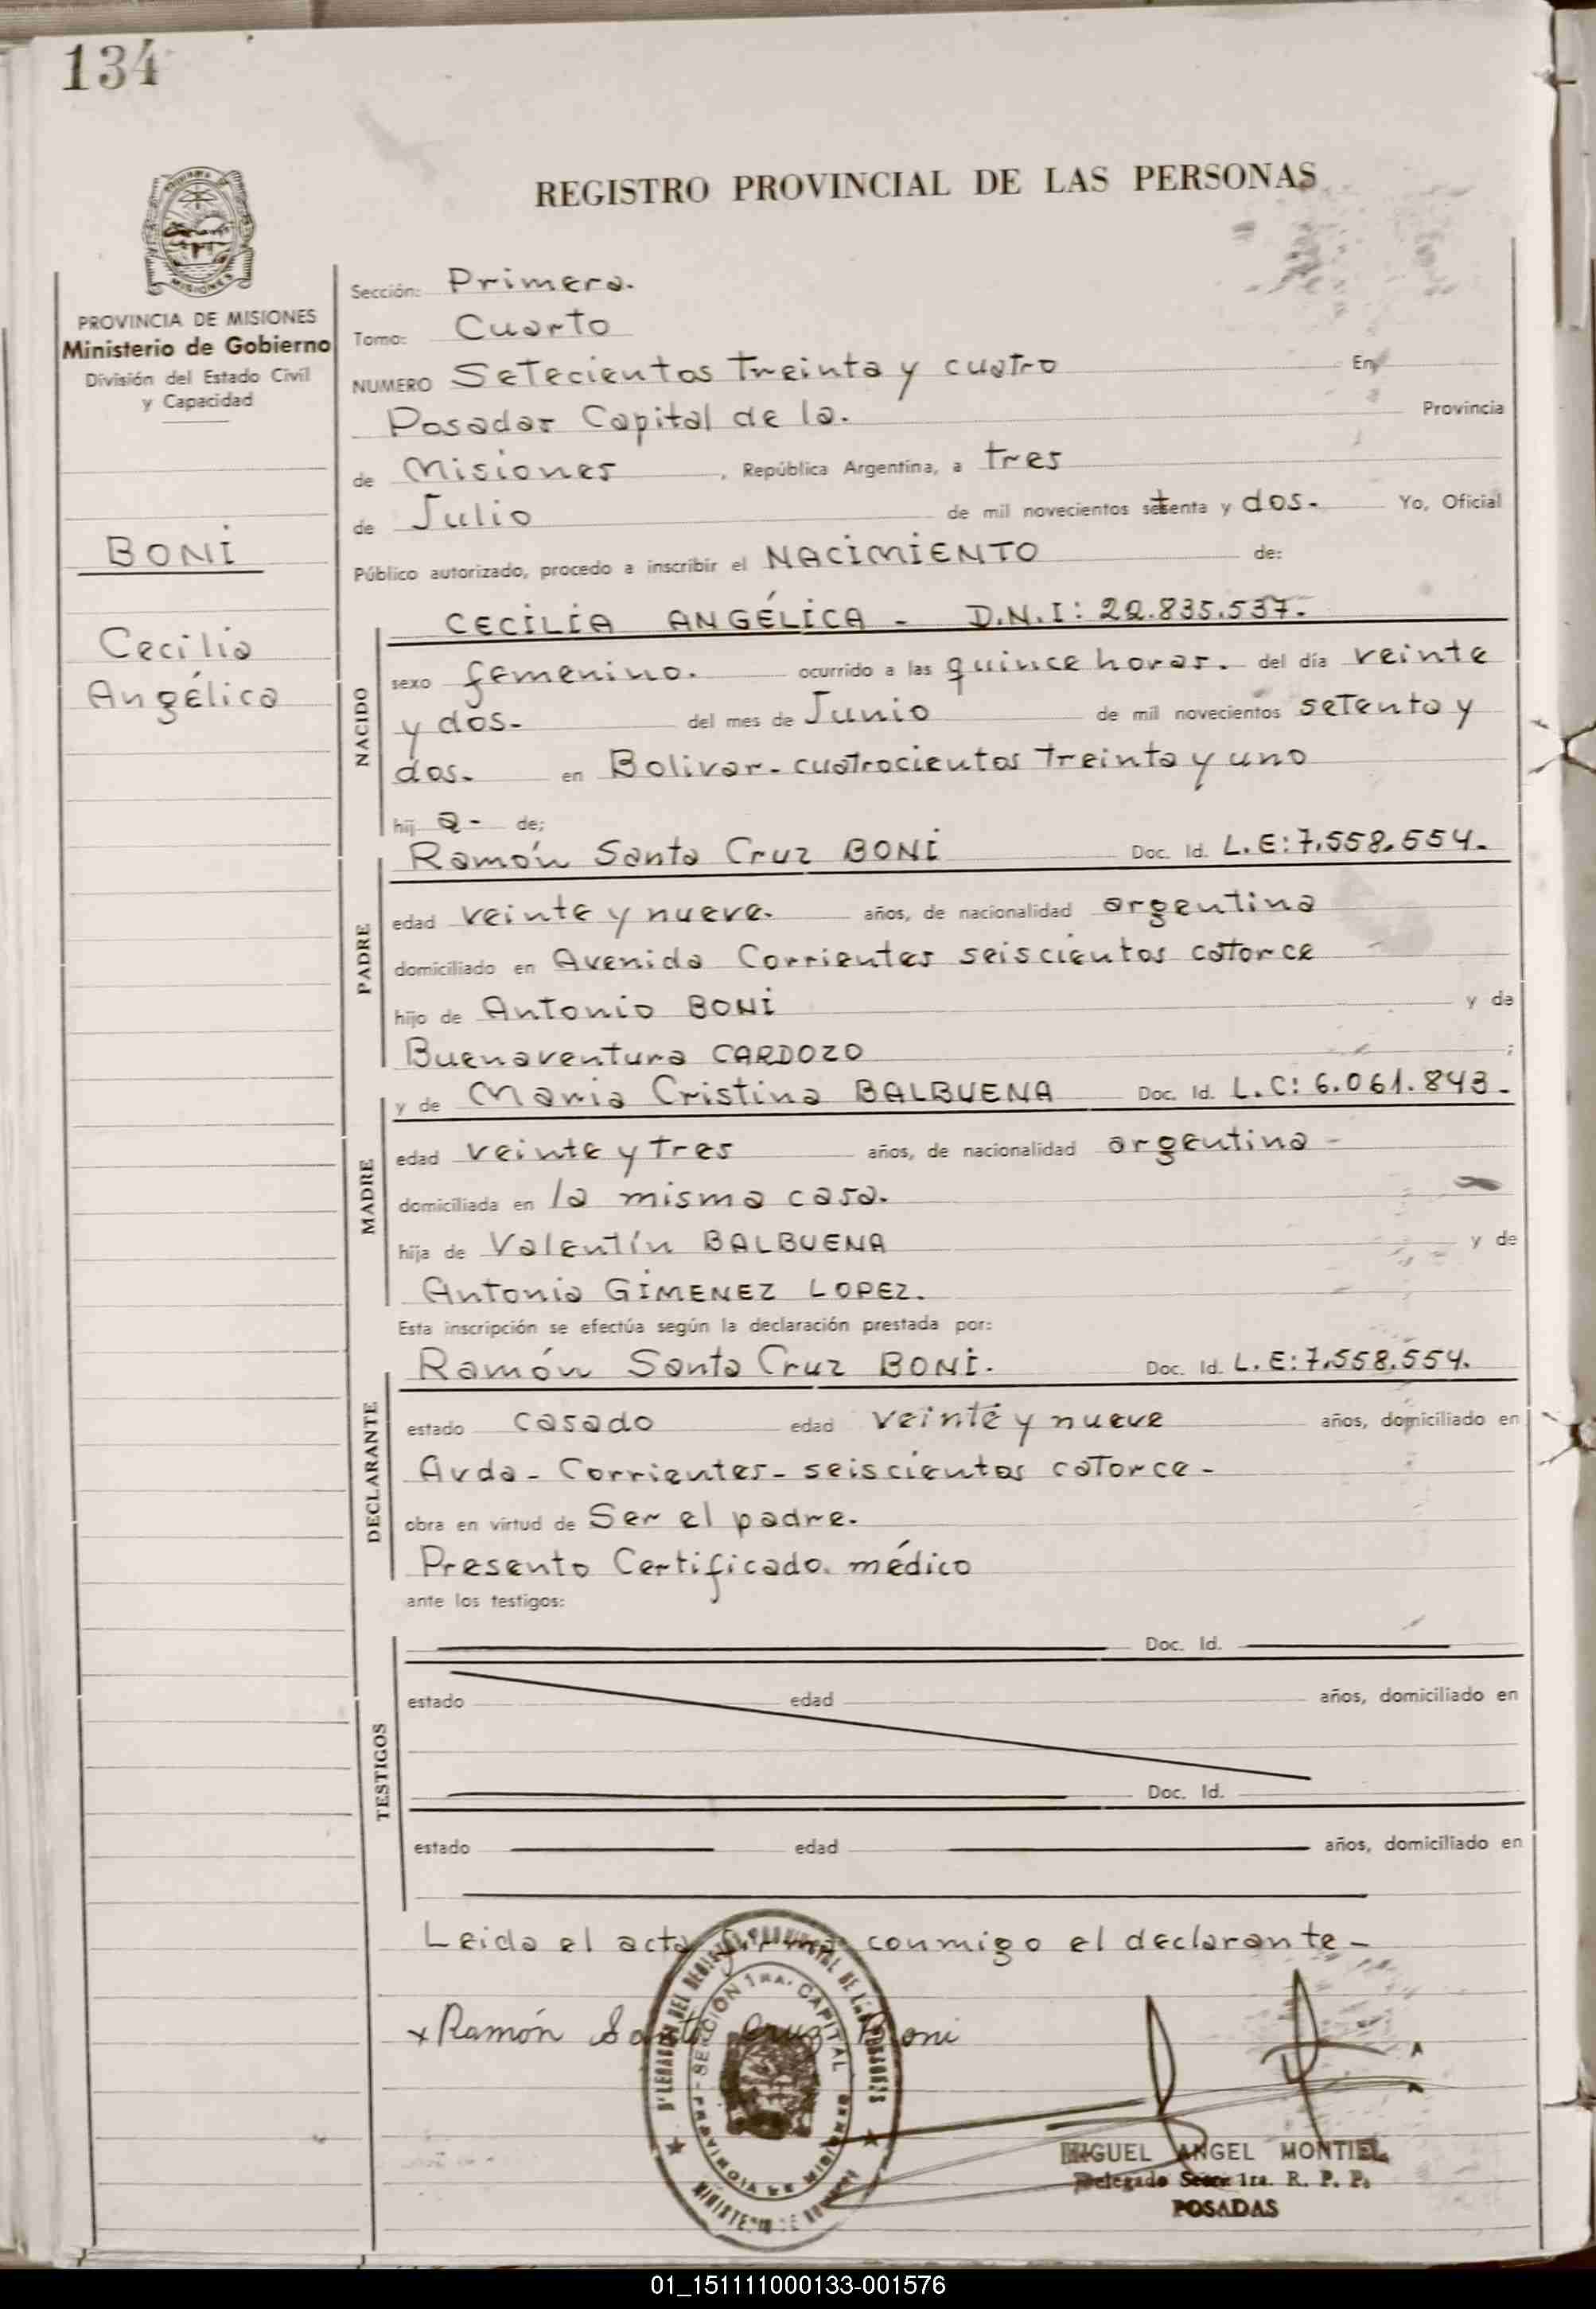 134
REGISTRO PROVINCIAL DE LAS PERSONAS
MISIONES
PROVINCIA DE MISIONES
Ministerio de Gobierno
División del Estado Civil
y Capacidad
BONI
Cecilia
Angélica
Sección: Primera.
Tomo: Cuarto
NUMERO Setecientos treinta y cuatro En
Posadas Capital de la. Provincia
de Misiones, República Argentina, a tres
de Julio de mil novecientos setenta y dos. Yo, Oficial
Público autorizado, procedo a inscribir el NACIMIENTO de:
NACIDO
CECILIA ANGÉLICA - D.N.I: 22.835.537.
sexo femenino. ocurrido a las quince horas. del día veinte
y dos. del mes de Junio de mil novecientos setenta y
dos. en Bolivar. cuatrocientos treinta y uno
hij a - de;
PADRE
Ramón Santa Cruz BONI Doc. Id. L.E: 7.558.554.
edad veinte y nueve. años, de nacionalidad argentina
domiciliado en Avenida Corrientes seiscientos catorce
hijo de Antonio BONI y de
Buenaventura CARDOZO ;
MADRE
y de Maria Cristina BALBUENA Doc. Id. L.C: 6.061.843.
edad veinte y tres años, de nacionalidad argentina -
domiciliada en la misma casa.
hija de Valentín BALBUENA y de
Antonia GIMENEZ LOPEZ.
Esta inscripción se efectúa según la declaración prestada por:
DECLARANTE
Ramón Santa Cruz BONI. Doc. Id. L.E: 7.558.554.
estado casado edad veinte y nueve años, domiciliado en
Avda - Corrientes - seiscientos catorce -
obra en virtud de Ser el padre.
Presento Certificado. médico
ante los testigos:
TESTIGOS
Doc. Id.
estado edad años, domiciliado en
Doc. Id.
estado edad años, domiciliado en
Leida el acta firma conmigo el declarante -
x Ramón Santa Cruz Boni
SECCION 1RA. CAPITAL
PROVINCIA DE MISIONES
MIGUEL ANGEL MONTIEL
Delegado Secc. 1ra. R. P. P.
POSADAS
01_151111000133-001576